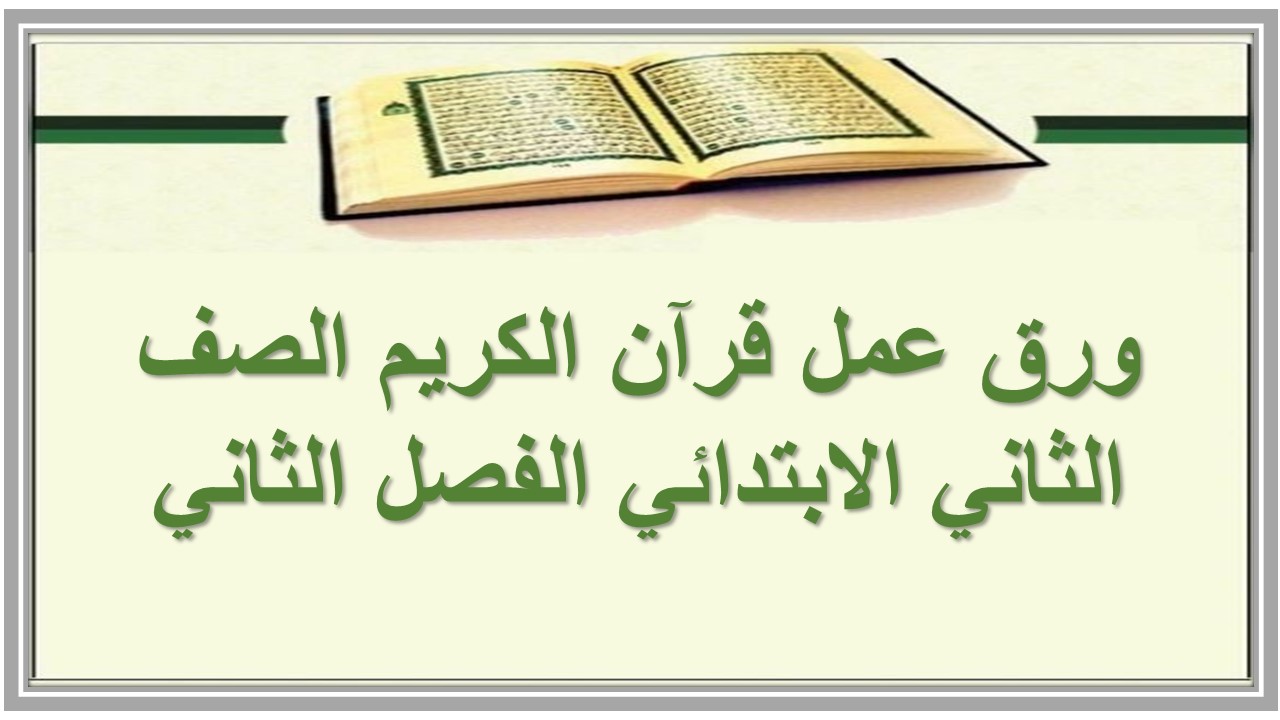 ورق عمل قرآن الكريم الصف
الثاني الابتدائي الفصل الثاني